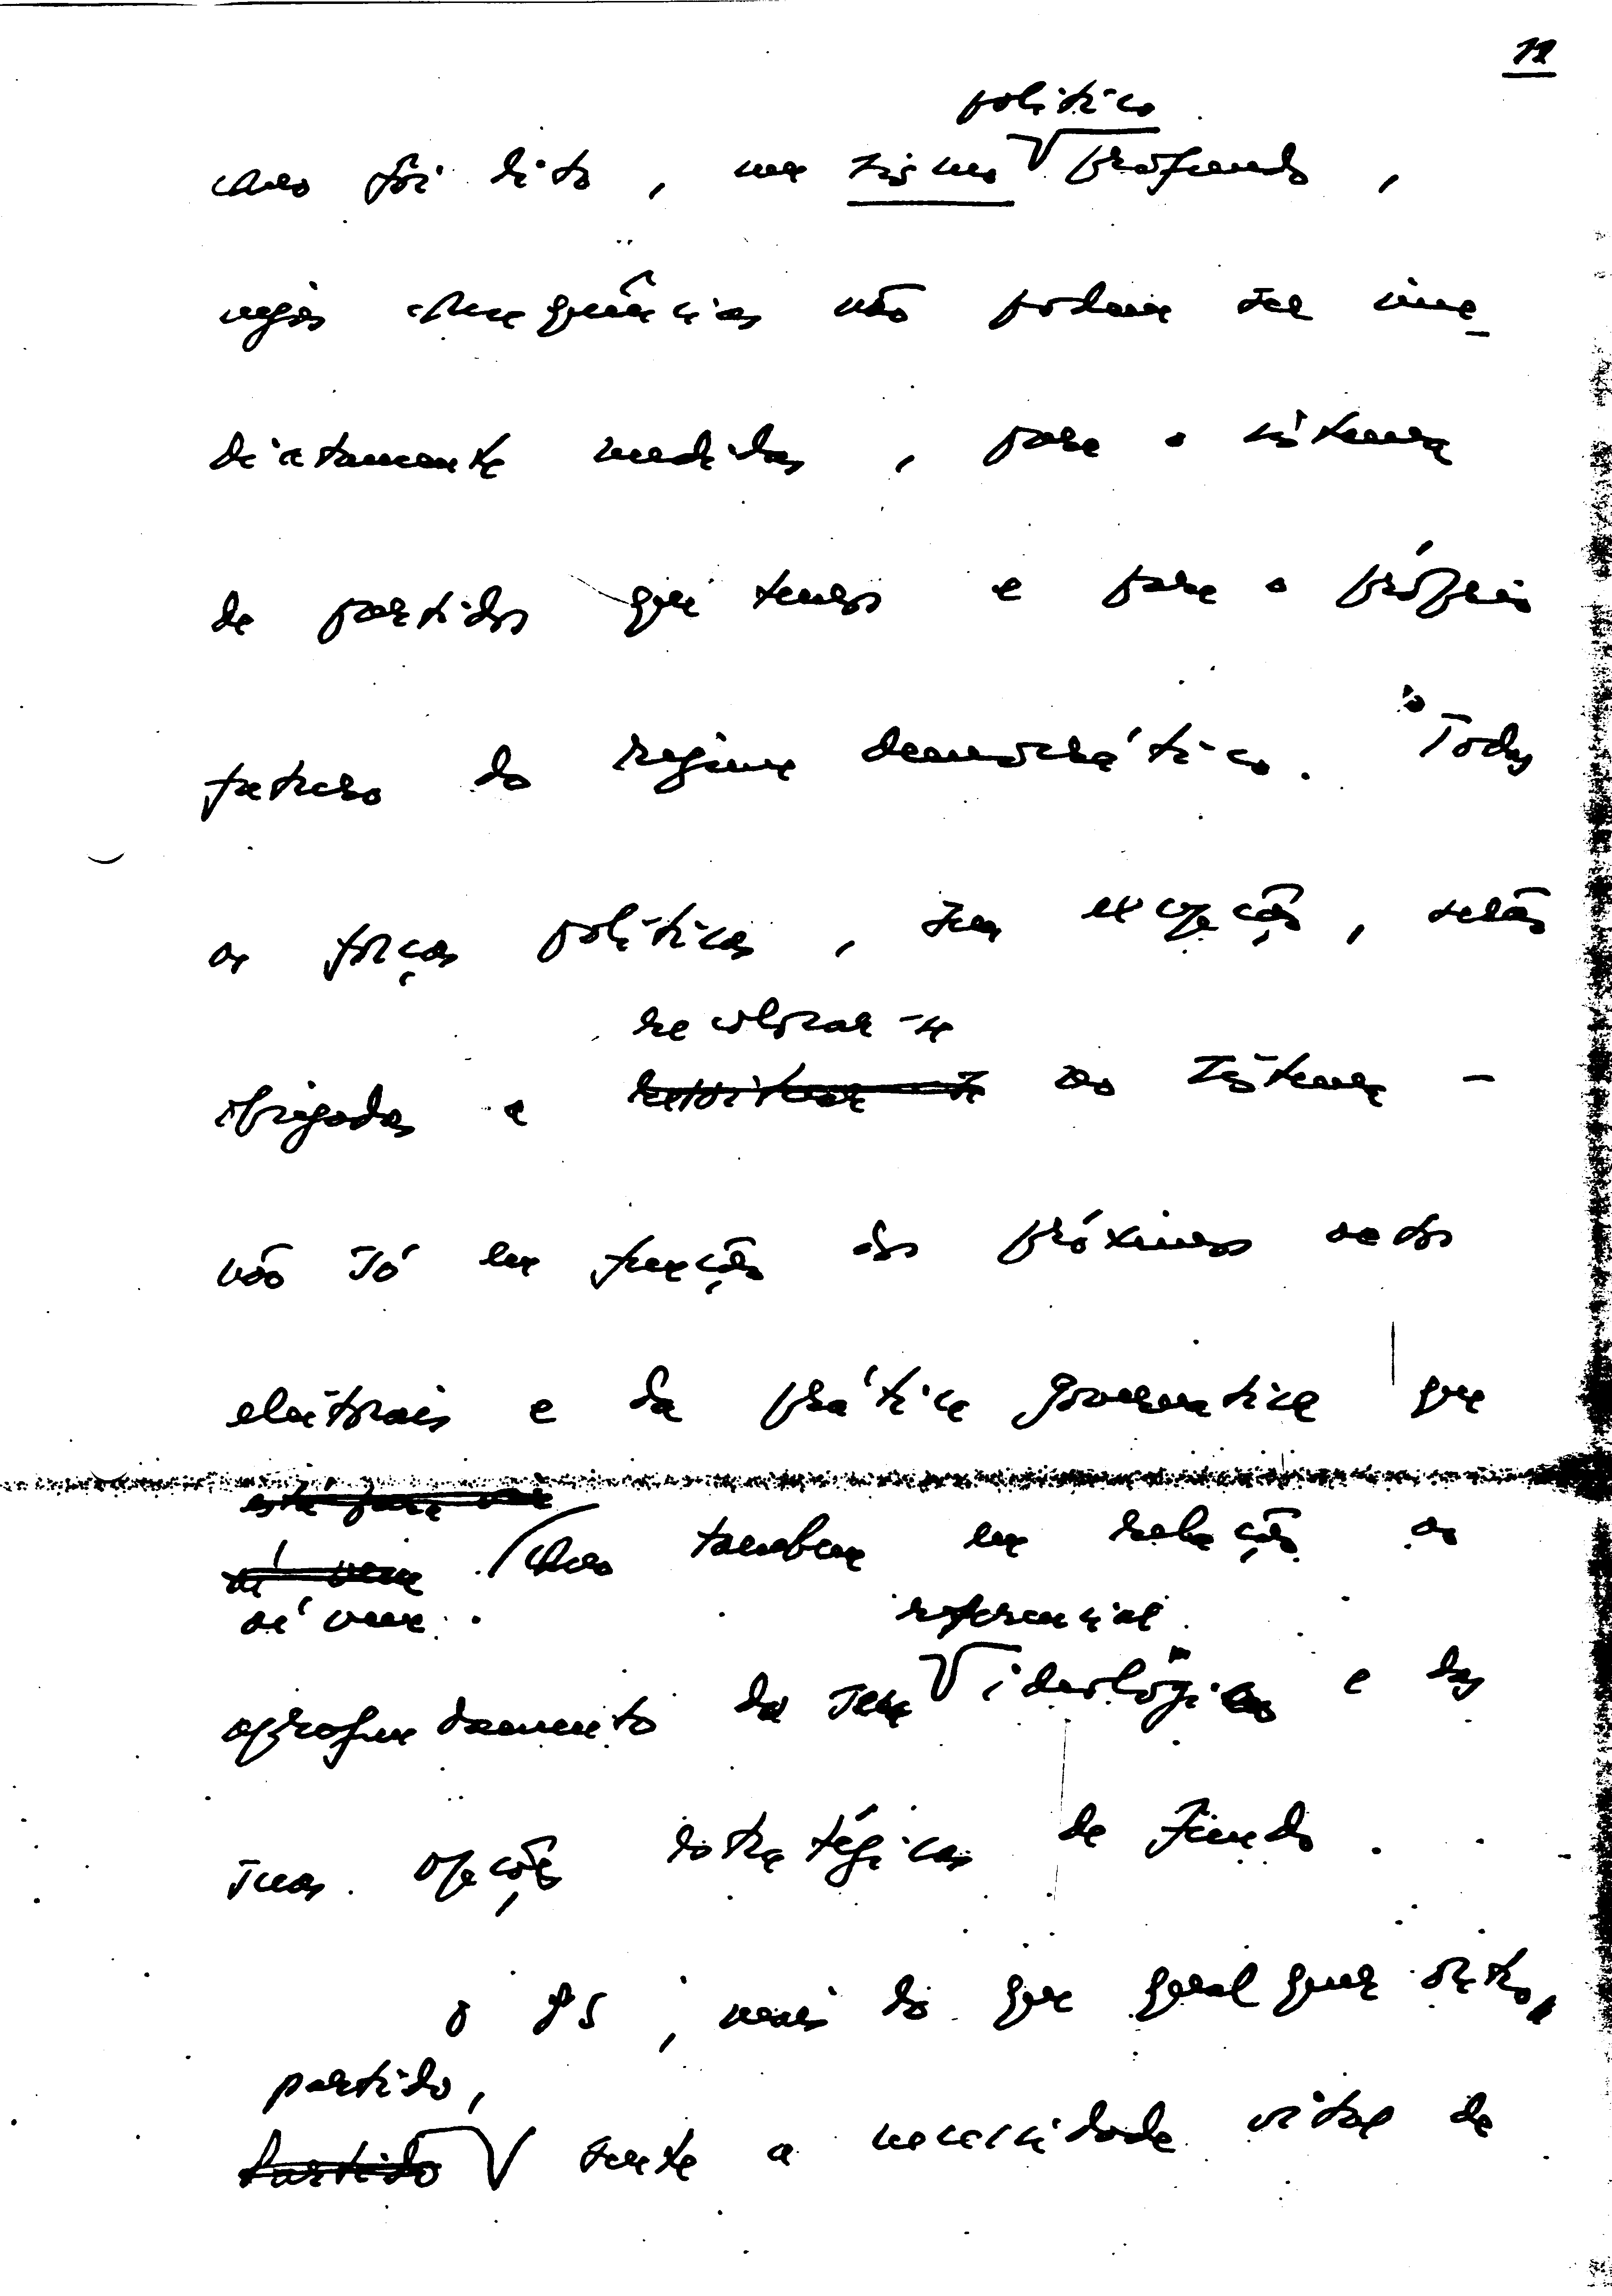 12
político
como foi dito, um sismo profundo,
cujas consequências não podem ser ime_
diatamente medidas, para o sistema
de partidos que temos e para o próprio
futuro do regime democrático. Todas
as forças políticas, sem excepção, serão
recolocar-se
obrigadas a no sistema -
não só em função dos próximos actos
eleitorais e da prática governativa que
como também em relação ao
aí vem referencial
aprofundamento da seu ideológico e das
suas opções estratégicas de fundo.
O PS, mais do que qualquer outro
partido,
partido sente a necessidade vital de